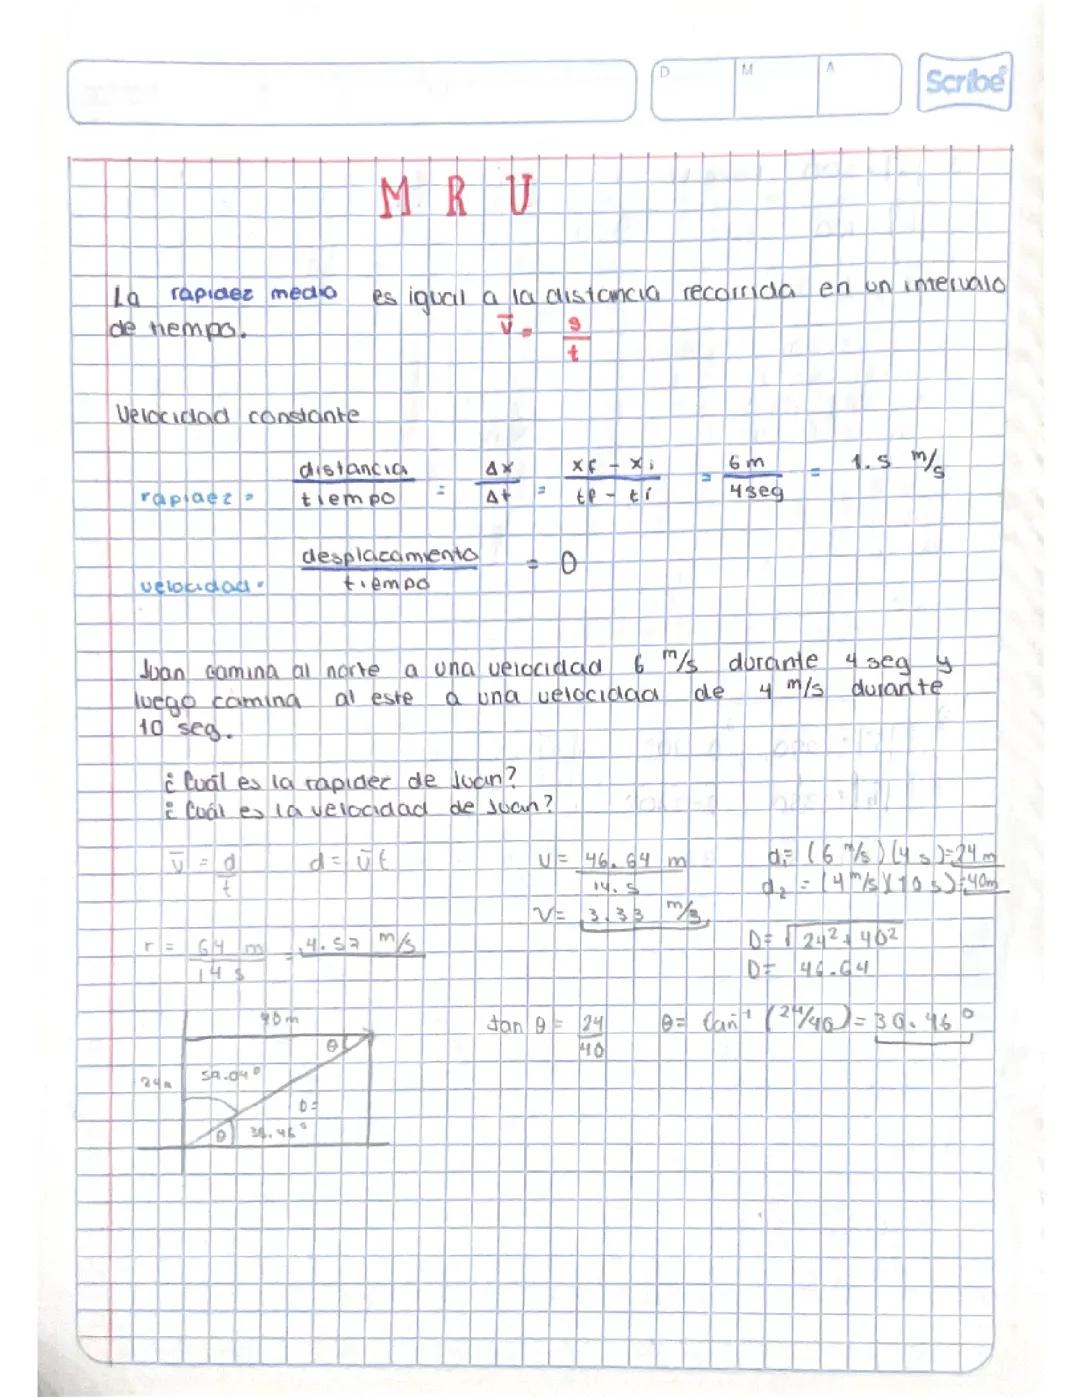 D M A Scribe
M R U
La rapidez media es igual a la distancia recorrida en un intervalo
de tiempo. v̄ = s/t
Velocidad constante
rapidez = distancia/tiempo = Δx/Δt = xf - xi/tf - ti = 6 m/4 seg = 1.5 m/s
velocidad = desplazamiento/tiempo = 0
Juan camina al norte a una velocidad 6 m/s durante 4 seg y
luego camina al este a una velocidad de 4 m/s durante
10 seg.
¿Cuál es la rapidez de Juan?
¿Cuál es la velocidad de Juan?
v̄ = d/t d = v̄t V = 46.64 m/14.s d₁ = (6 m/s)(4 s) = 24 m
V = 3.33 m/s d₂ = (4 m/s)(10 s) = 40m
r = 64 m/14 s = 4.57 m/s D = √24² + 40²
D = 46.64
40 m tan θ = 24/40 θ = tan⁻¹ (24/40) = 30.96°
θ
24m 59.04°
D =
θ 30.96°